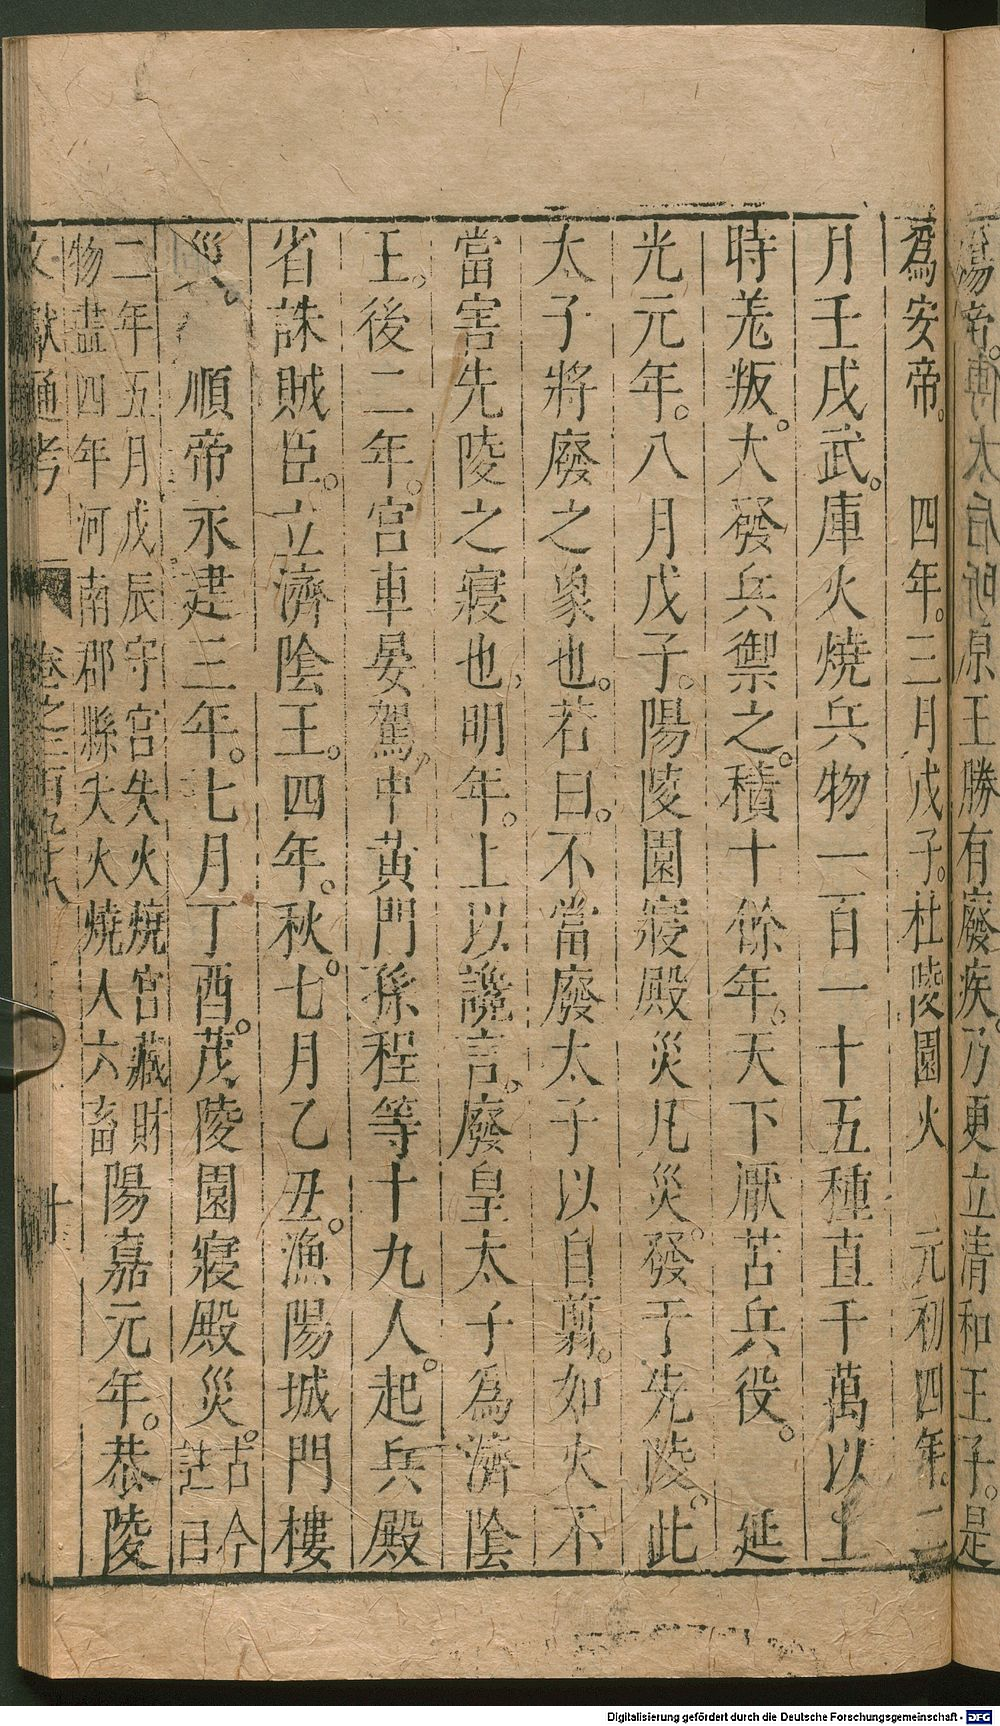 殤帝。傅太后所
原王勝有廢疾乃更立清和王子。是
爲安帝。　四年。三月戊子。杜陵園火　元初四年。二
月壬戌武。庫火燒兵物一百一十五種直千萬以上
時羌叛。大發兵禦之。積十餘年。天下厭苦兵役。　延
光元年。八月戊子。陽陵園寢殿災凡災。發于先陵。此
太子將廢之象也。若曰。不當廢太子以自翦。如火不
當害先陵之寢也。明年。上以讒言。廢皇太子爲濟陰
王。後二年。宮車晏駕。中黃門孫程等十九人。起兵殿
省誅賊臣。立濟陰王。四年。秋。七月乙丑。漁陽城門樓
災。　順帝永建三年。七月丁酉。茂陵園寢殿災。古今註曰
二年五月戊辰守宮失火燒宮藏財物盡四年河南郡縣失火燒人六畜陽嘉元年。恭陵
文獻通考　卷之二百九十八　十
Digitalisierung gefördert durch die Deutsche Forschungsgemeinschaft - DFG